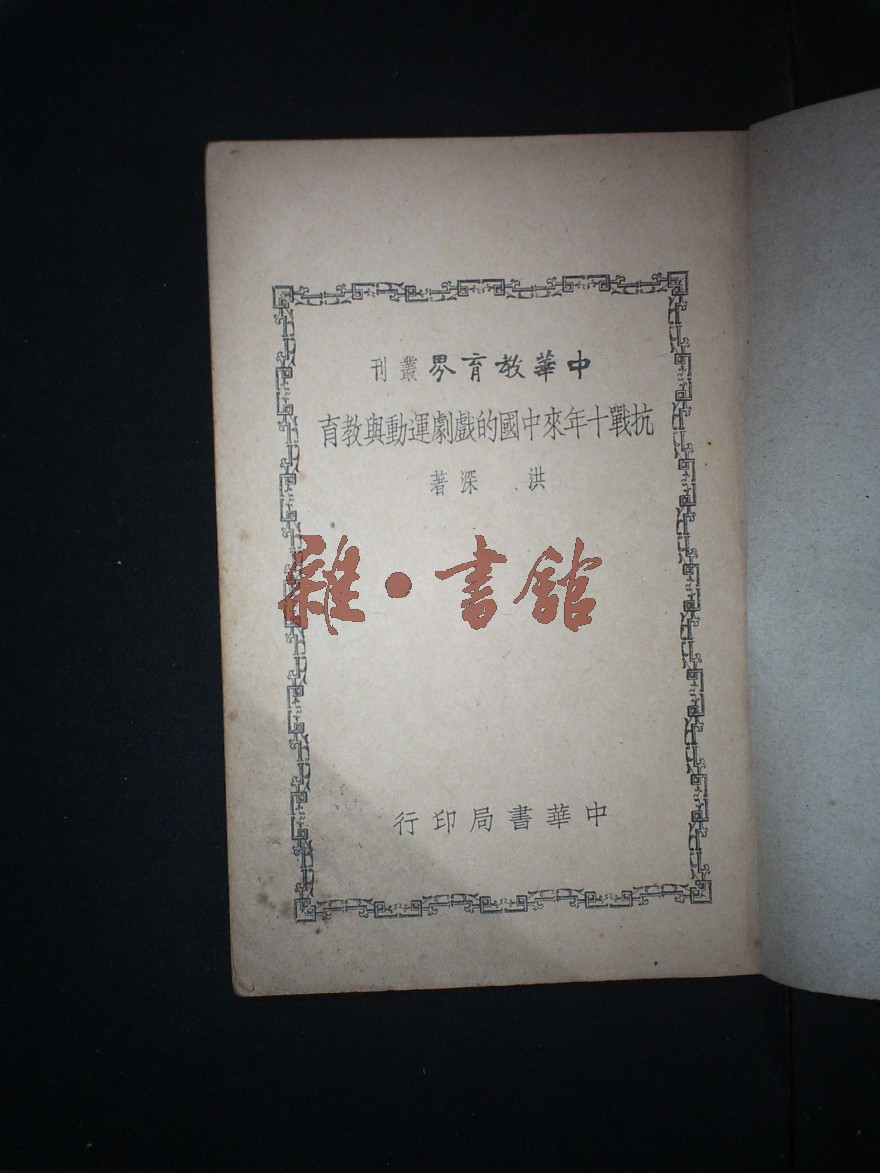 中華教育界叢刊
抗戰十年來中國的戲劇運動與教育
洪深著
雜·書館
中華書局印行